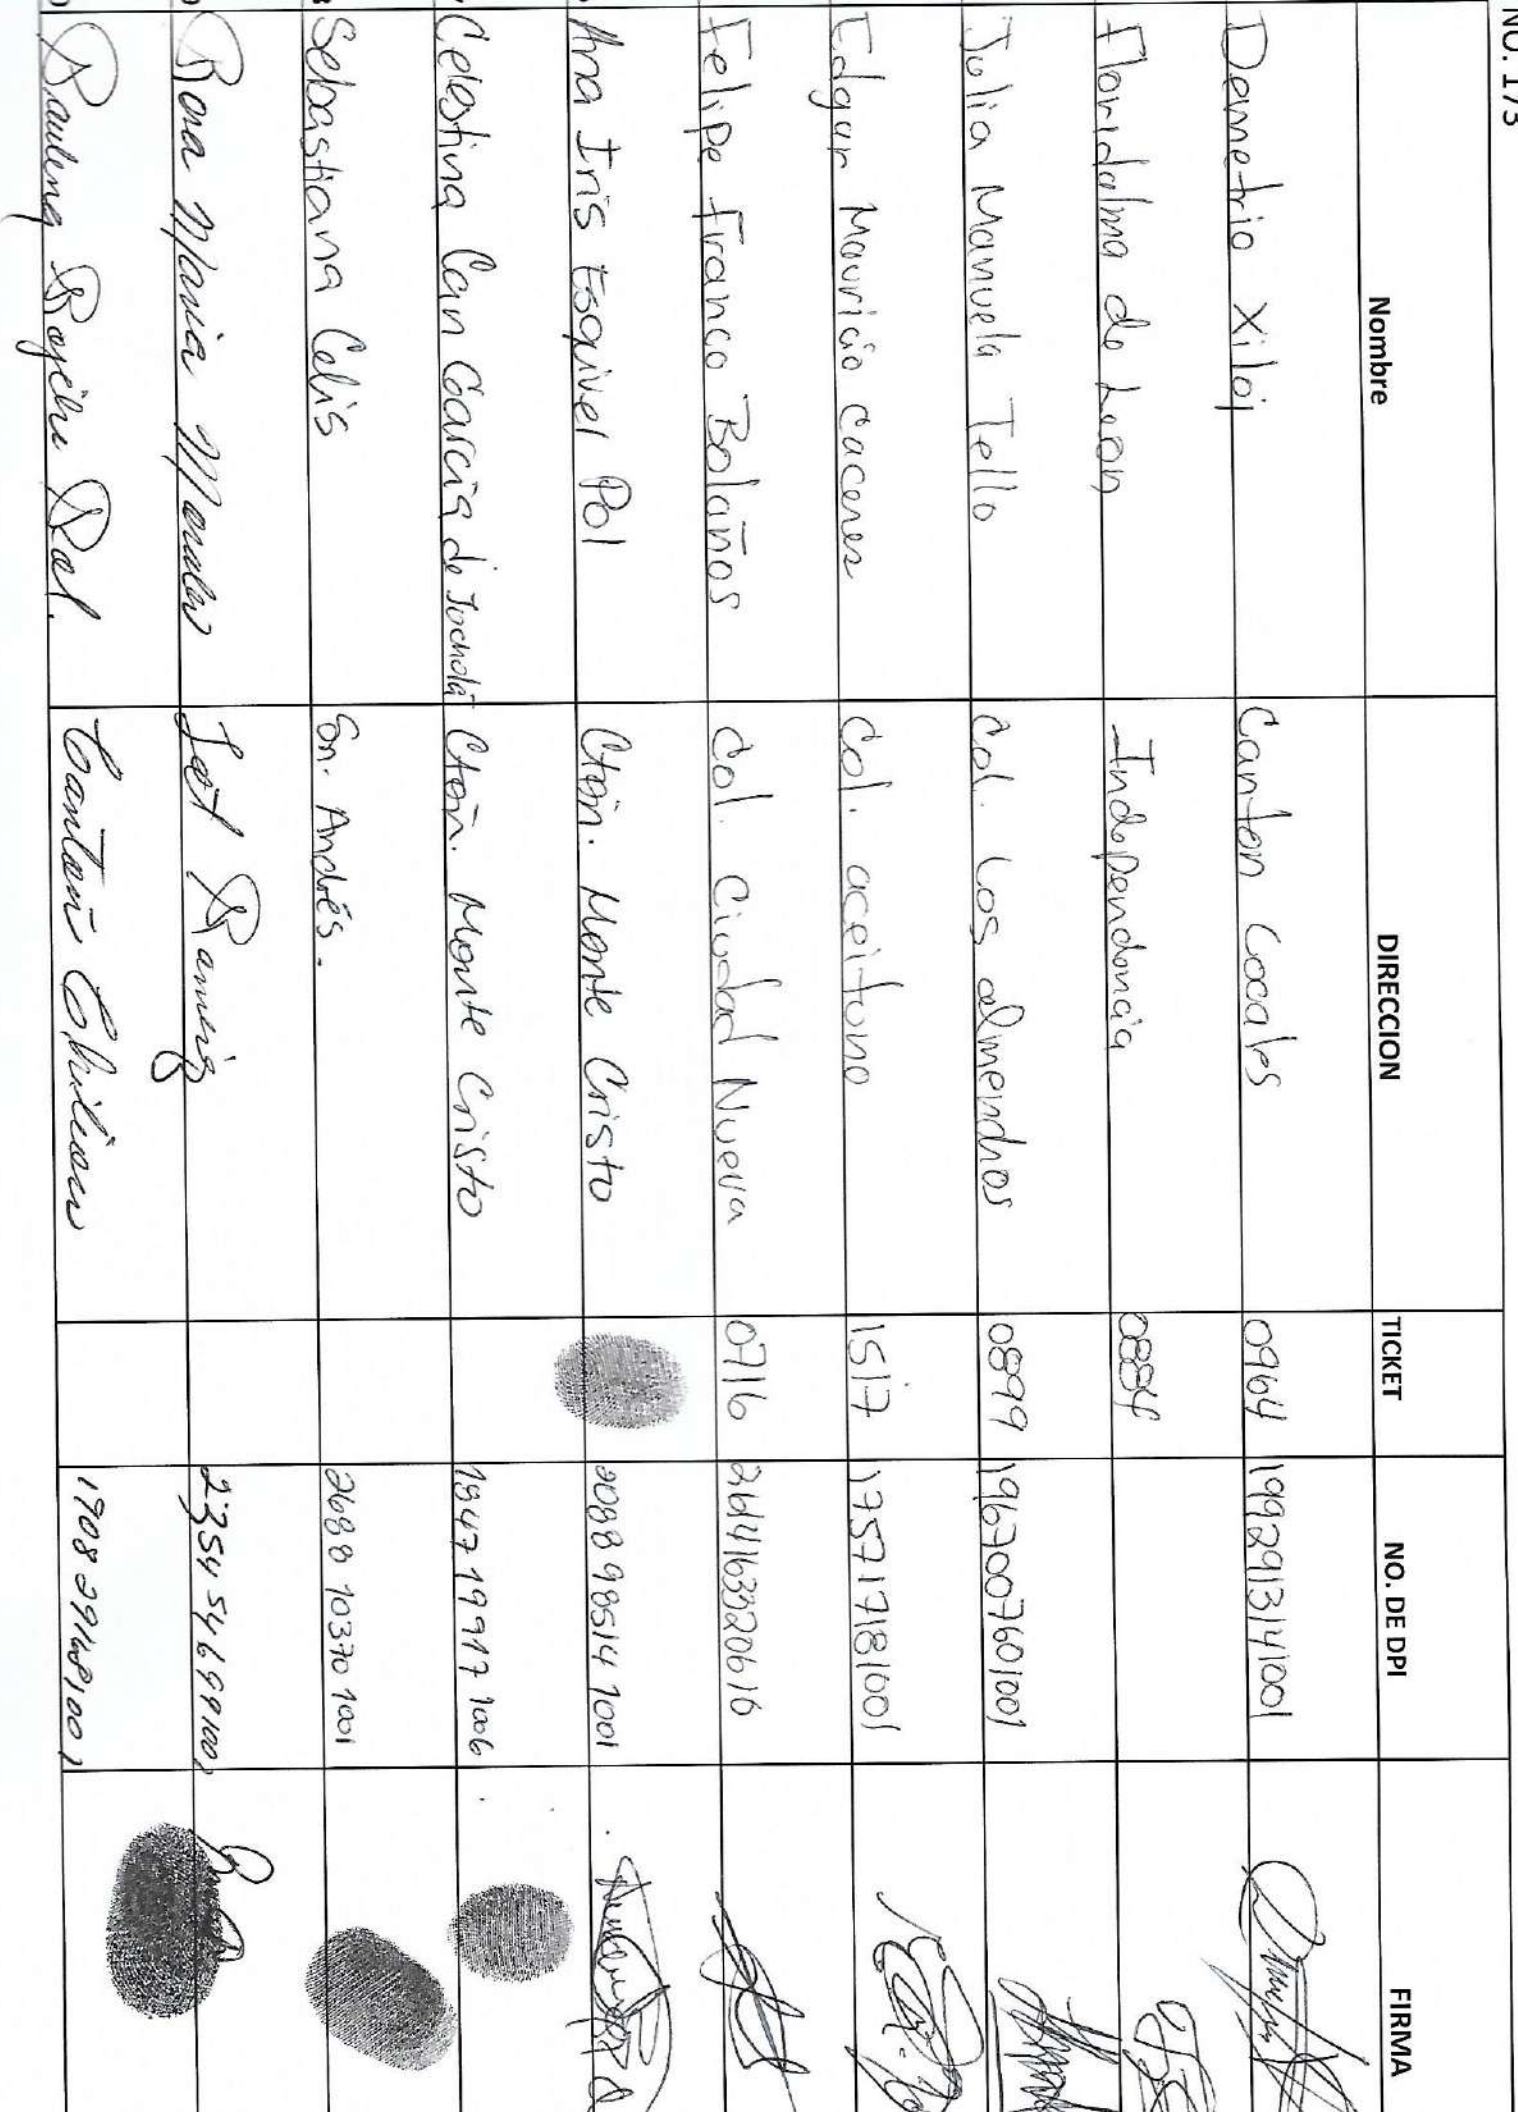 NO. 173
Nombre DIRECCION TICKET NO. DE DPI FIRMA
Demetrio Xiloj Canton Cocales 0964 1992913141001
Floridalma de Leon Independencia 0884
Julia Manuela Tello Col. Los almendros 0899 1967007601001
Edgar Mauricio caceres Col. aceituno 1517 1757171811001
Felipe franco Bolaños Col. Ciudad Nueva 0716 2614163320616
Ana Iris Esquivel Pol Ctón. Monte Cristo 2088 98514 1001
Celestina Can García de Jochola Ctón. Monte Cristo 1847 19917 1006
Sebastiana Celis Sn. Andrés. 2688 10370 1001
Rosa Maria Morales Lot Ramirez 2354 54699 1001
Paulina Cantón Chilicau 1708